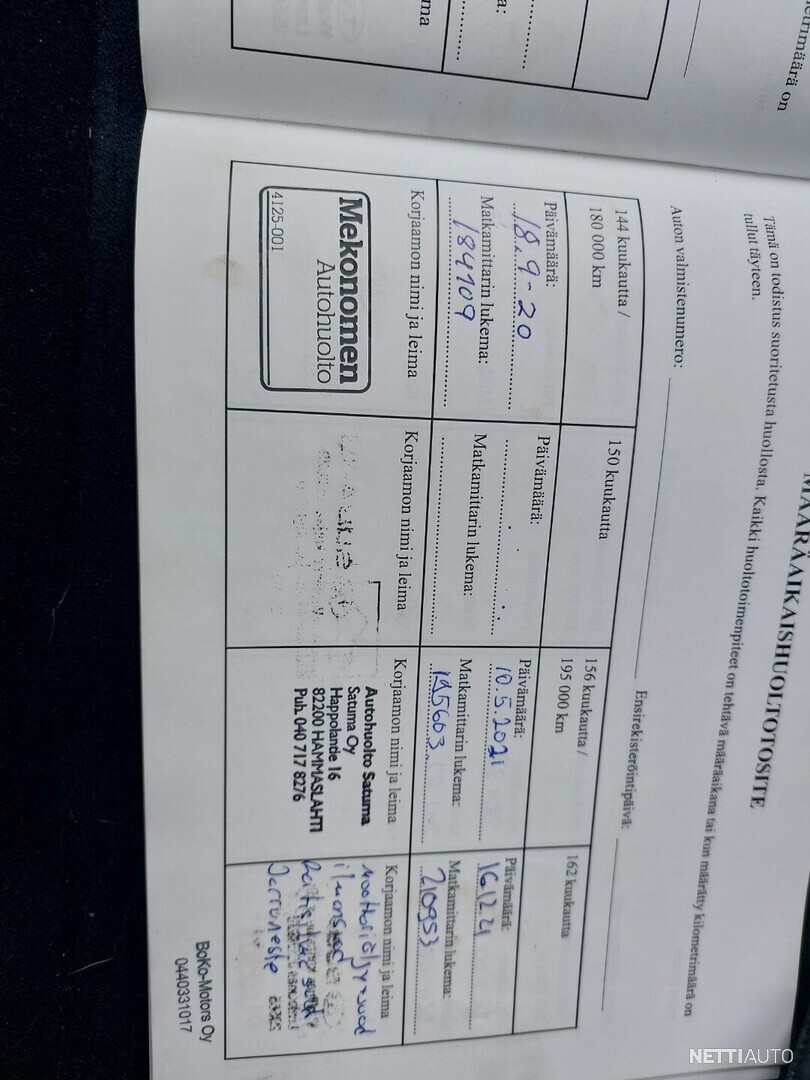 MÄÄRÄAIKAISHUOLTOTOSITE
Tämä on todistus suoritetusta huollosta. Kaikki huoltotoimenpiteet on tehtävä määräaikana tai kun määrätty kilometrimäärä on
tullut täyteen.
Auton valmistenumero:
Ensirekisteröintipäivä:
144 kuukautta /
180 000 km
Päivämäärä:
18.9-20
Matkamittarin lukema:
184109
Korjaamon nimi ja leima
Mekonomen
Autohuolto
4125-001
150 kuukautta
Päivämäärä:
Matkamittarin lukema:
Korjaamon nimi ja leima
156 kuukautta /
195 000 km
Päivämäärä:
10.5.2021
Matkamittarin lukema:
195603
Korjaamon nimi ja leima
Autohuolto Satuma
Satuma Oy
Happolantie 16
82200 HAMMASLAHTI
Puh. 040 717 8276
162 kuukautta
Päivämäärä:
16.12.21
Matkamittarin lukema:
210953
Korjaamon nimi ja leima
moottoriöljy+suod
ilmansuod
Raitisilmasuod
Jarruneste
BoKo-Motors Oy
0440331017
NETTIAUTO